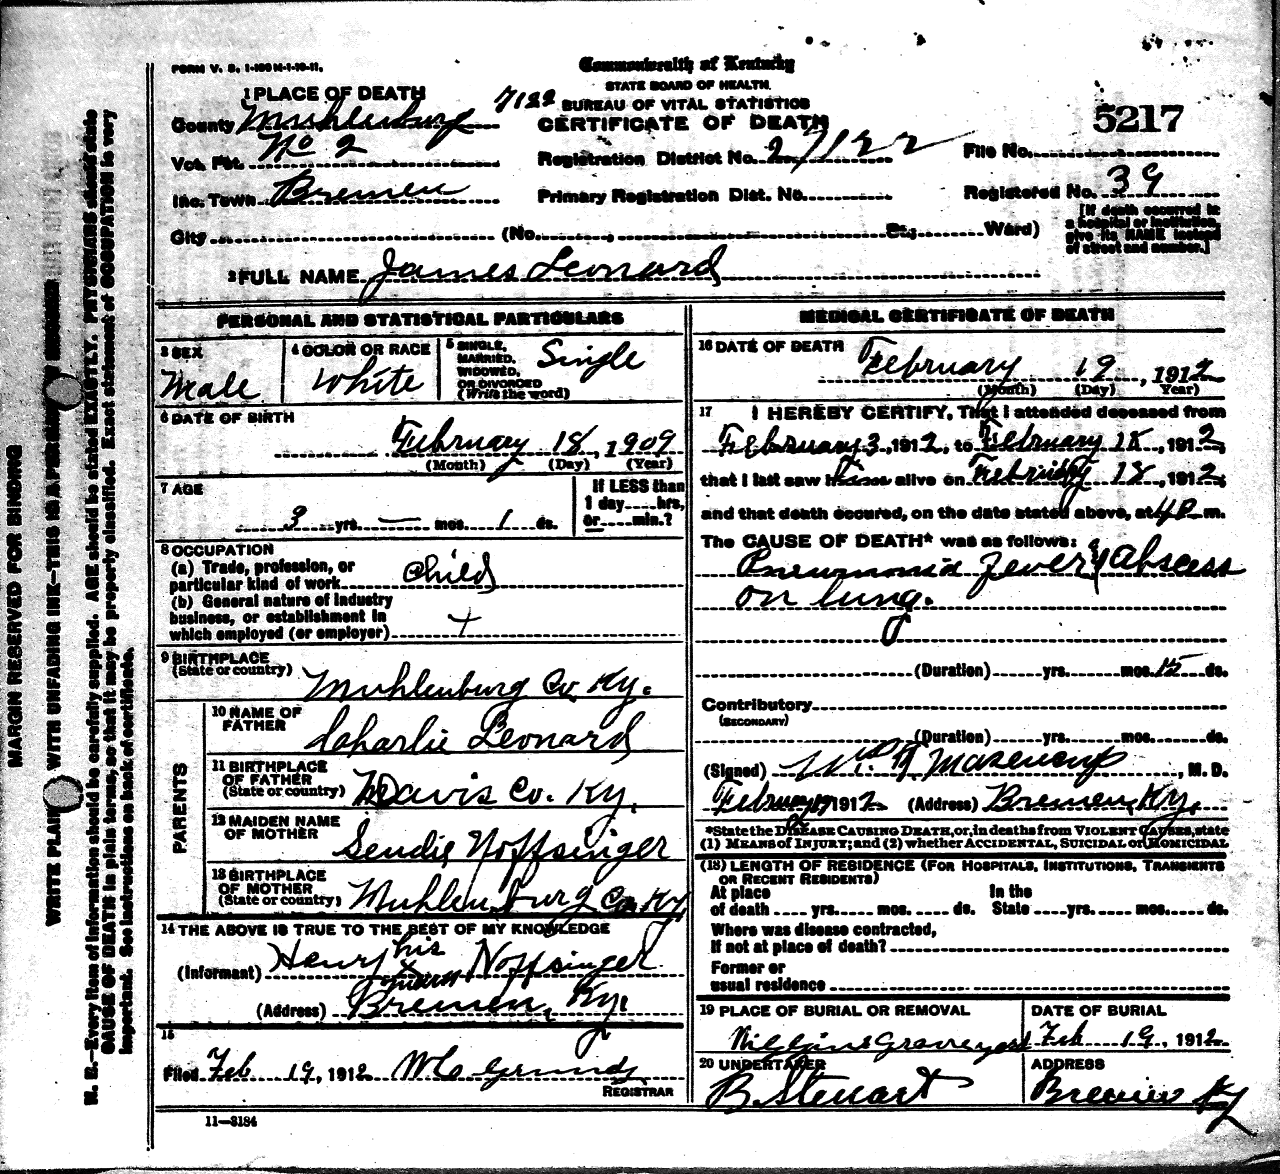 FORM V. S. 1-100 M-1-10-11.
Commonwealth of Kentucky
STATE BOARD OF HEALTH.
BUREAU OF VITAL STATISTICS
CERTIFICATE OF DEATH
1 PLACE OF DEATH
7122
5217
County Muhlenburg
Vot. Pct. No 2
Registration District No. 27122
File No.
Inc. Town Bremen
Primary Registration Dist. No.
Registered No. 39
City (No. , St.; Ward)
[If death occurred in
a hospital or institution,
give its NAME instead
of street and number.]
2 FULL NAME James Leonard
PERSONAL AND STATISTICAL PARTICULARS
3 SEX
Male
4 COLOR OR RACE
White
5 SINGLE,
MARRIED,
WIDOWED,
OR DIVORCED
(Write the word)
Single
6 DATE OF BIRTH
February 18, 1909
(Month) (Day) (Year)
7 AGE
3 yrs. — mos. 1 ds.
If LESS than
1 day hrs.
or min.?
8 OCCUPATION
(a) Trade, profession, or
particular kind of work Child
(b) General nature of industry
business, or establishment in
which employed (or employer) +
9 BIRTHPLACE
(State or country) Muhlenburg Co Ky.
PARENTS
10 NAME OF
FATHER Charlie Leonard
11 BIRTHPLACE
OF FATHER
(State or country) Davis Co. Ky.
12 MAIDEN NAME
OF MOTHER Sendie Noffsinger
13 BIRTHPLACE
OF MOTHER
(State or country) Muhlenburg Co Ky.
14 THE ABOVE IS TRUE TO THE BEST OF MY KNOWLEDGE
(Informant) Henry his x mark Noffsinger
(Address) Bremen, Ky.
15
Filed Feb 19, 1912
REGISTRAR
11—3184
MEDICAL CERTIFICATE OF DEATH
16 DATE OF DEATH
February 19, 1912
(Month) (Day) Year)
17 I HEREBY CERTIFY, That I attended deceased from
February 3, 1912, to February 18, 1912,
that I last saw him alive on February 18, 1912,
and that death occured, on the date stated above, at 4 P m.
The CAUSE OF DEATH* was as follows:
Pneumonia Fever & abscess
on lung.
(Duration) yrs. mos. 15 ds.
Contributory
(SECONDARY)
(Duration) yrs. mos. ds.
(Signed) , M. D.
February 19 1912 (Address) Bremen, Ky.
*State the DISEASE CAUSING DEATH, or, in deaths from VIOLENT CAUSES, state
(1) MEANS OF INJURY; and (2) whether ACCIDENTAL, SUICIDAL or HOMICIDAL
(18) LENGTH OF RESIDENCE (FOR HOSPITALS, INSTITUTIONS, TRANSIENTS
OR RECENT RESIDENTS)
At place
of death yrs. mos. ds.
In the
State yrs. mos. ds.
Where was disease contracted,
If not at place of death?
Former or
usual residence
19 PLACE OF BURIAL OR REMOVAL
Wiggins Graveyard
DATE OF BURIAL
Feb 19, 1912
20 UNDERTAKER
B. Stewart
ADDRESS
Bremen Ky
MARGIN RESERVED FOR BINDING
WRITE PLAINLY WITH UNFADING INK—THIS IS A PERMANENT RECORD
N. B.—Every item of information should be carefully supplied. AGE should be stated EXACTLY. PHYSICIANS should state
CAUSE OF DEATH in plain terms, so that it may be properly classified. Exact statement of OCCUPATION is very
important. See instructions on back of certificate.